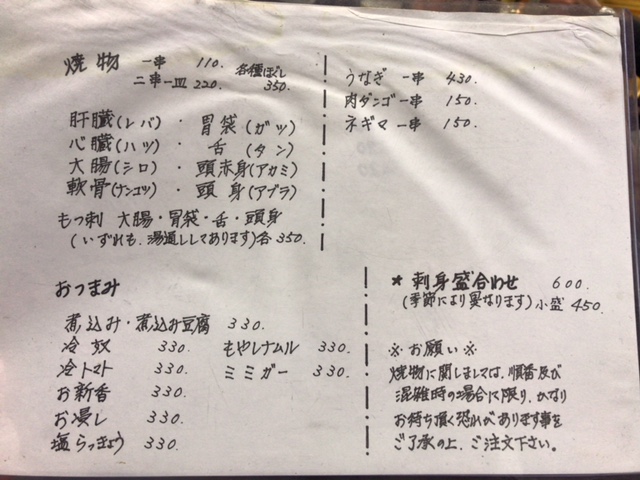 焼物 一串 110. 各種ほぐし
二串一皿 220. 350.
肝臓(レバ)・胃袋(ガツ)
心臓(ハツ)・舌(タン)
大腸(シロ)・頭赤身(アカミ)
軟骨(ナンコツ)・頭身(アブラ)
もつ刺 大腸・胃袋・舌・頭身
(いずれも、湯通ししてあります)各350.
うなぎ 一串 430.
肉ダンゴ 一串 150.
ネギマ 一串 150.
おつまみ
煮込み・煮込み豆腐 330.
冷奴 330. もやしナムル 330.
冷トマト 330. ミミガー 330.
お新香 330.
お浸し 330.
塩らっきょう 330.
* 刺身盛合わせ 600.
(季節により異なります)小盛 450.
※お願い※
焼物に関しましては、順番及び
混雑時の場合に限り、かなり
お待ち頂く恐れがあります事を
ご了承の上、ご注文下さい。